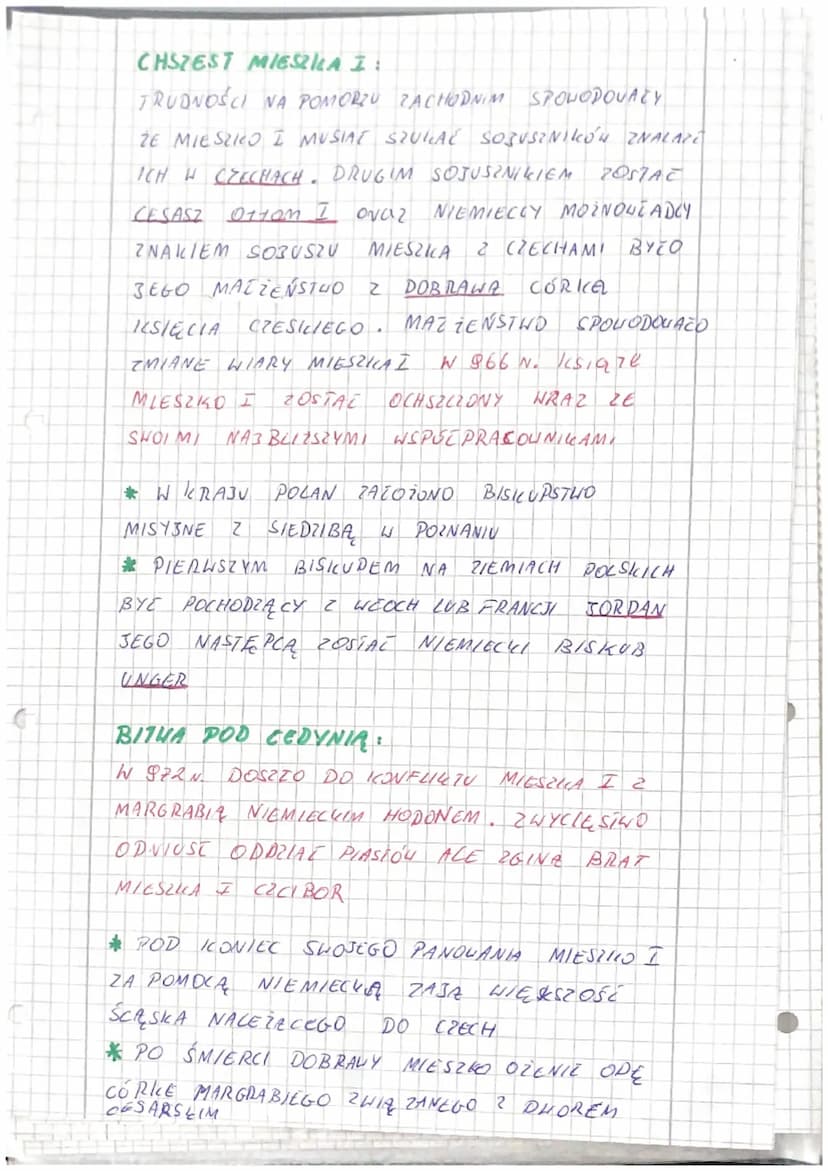 CHSZEST MIESZKA I:
TRUDNOŚCI NA POMORZU ZACHODNIM SPOWODOWAŁY
ŻE MIESZKO I MUSIAŁ SZUKAĆ SOJUSZNIKÓW ZNALAZŁ
ICH W CZECHACH. DRUGIM SOJUSZNIKIEM ZOSTAŁ
CESASZ OTTOM I oraz NIEMIECCY MOŻNOWŁADCY
ZNAKIEM SOJUSZU MIESZKA Z CZECHAMI BYŁO
JEGO MAŁŻEŃSTWO Z DOBRAWĄ CÓRKĄ
KSIĘCIA CZESKIEGO. MAŁŻEŃSTWO SPOWODOWAŁO
ZMIANE WIARY MIESZKA I W 966 N. KSIĄŻE
MIESZKO I ZOSTAŁ OCHSZCZONY WRAZ ZE
SWOIMI NAJBLIŻSZYMI WSPÓŁPRACOWNIKAMI
* W KRAJU POLAN ZAŁOŻONO BISKUPSTWO
MISYJNE Z SIEDZIBĄ W POZNANIU
* PIERWSZYM BISKUPEM NA ZIEMIACH POLSKICH
BYŁ POCHODZĄCY Z WŁOCH LUB FRANCJI JORDAN
JEGO NASTĘPCĄ ZOSTAŁ NIEMIECKI BISKUB
UNGER
BITWA POD CEDYNIĄ:
W 972 N. DOSZŁO DO KONFLIKTU MIESZKA I Z
MARGRABIĄ NIEMIECKIM HODONEM. ZWYCIĘSTWO
ODNIUSŁ ODDZIAŁ PIASTÓW ALE ZGINĄ BRAT
MIESZKA I CZCIBOR
* POD KONIEC SWOJEGO PANOWANIA MIESZKO I
ZA POMOCĄ NIEMIECKĄ ZAJĄ WIĘKSZOŚĆ
ŚLĄSKA NALEŻĄCEGO DO CZECH
* PO ŚMIERCI DOBRAWY MIESZKO OŻENIŁ ODĘ
CÓRKE MARGRABIEGO ZWIĄZANEGO Z DWOREM
CESARSKIM